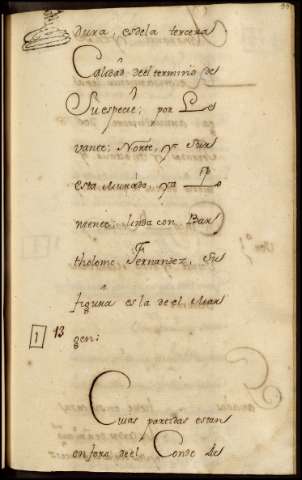 dura, es de la tercera
Calidad de el termino de
Su especie; por Le
vante, Norte, y Sur
esta Murado, y a Po
niente, linda con Bar
tholome Fernandez, su
figura es la de el Mar
1 13 gen:
Cuias paredas estan
en fora de el Conde de